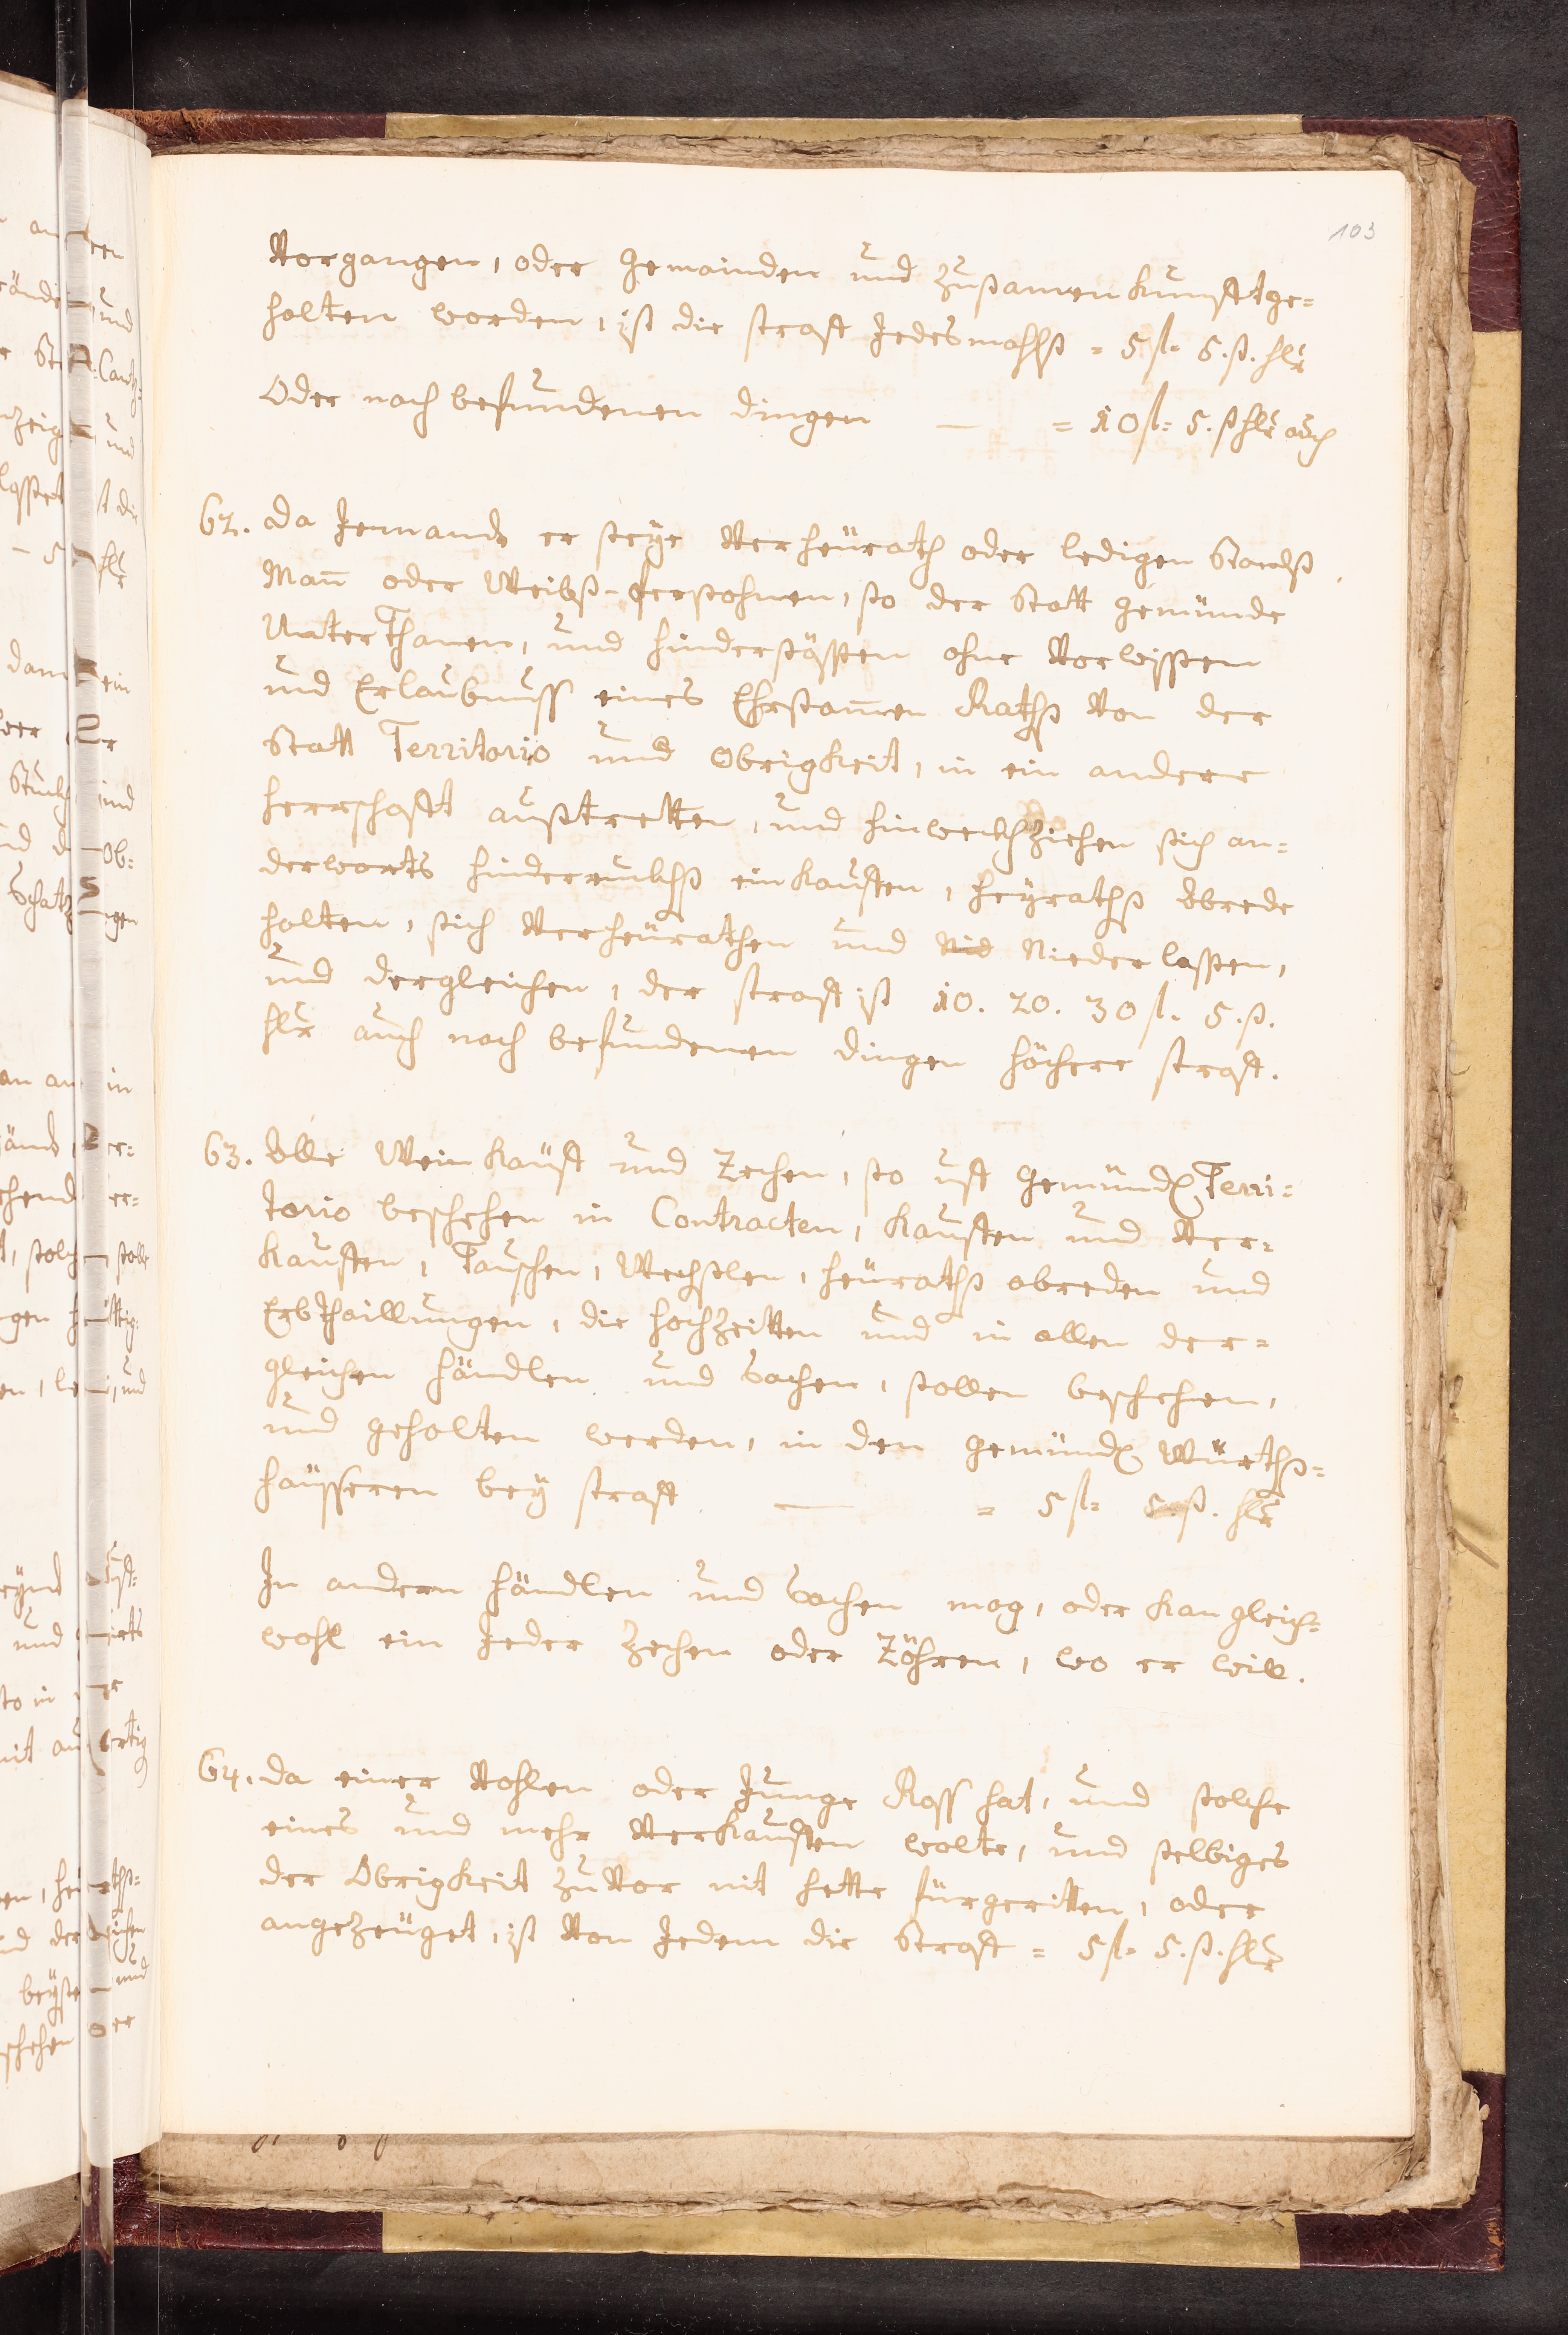 103
Vorgangen, oder Gemainden und zußamen kunfft ge=
halten worden, ist die straff Jedesmahlß = 5 fl= 5. ß. hlr
Oder nach befundenen dingen — = 10 fl= 5. ß hlr auch
62. Da Jemands er seye Verheürath oder ledigen Standß
Mañ oder Weibß-Persohnen, so der Statt Gemündt
Unterthanen, und hindersäßen ohne Vorwißen
und Erlaubnuss eines Ehrsam̃en Raths Von der
Statt Territorio und Obrigkeit, in ein andere
herrschafft außtretten, und hinwekhziehen sich an=
derworts hinderrukhß einkauffen, heyrathß Abrede
halten, sich Verheürathen und Nid Niederlaßen,
und dergleichen, der straff ist 10. 20. 30 fl. 5. ß.
hlr auch nach befundenen dingen höchere straff.
63. Alle Wein Kaüff und Zechen, so uff Gemündl. Terri=
torio beschehen in Contracten, Kauffen und Ver=
kauffen, Tauschen, Wechslen, heüraths abreden und
Erbthaillungen, die hochzeitten und in allen der=
gleichen händlen und Sachen, sollen beschehen,
und gehalten werden, in den Gemündl. Würthß=
haüsseren bey straff — = 5 fl= 5. ß. hlr
In andern händlen und Sachen mag, oder kan gleich=
wohl ein Jeder Zechen oder Zöhren, wo er will.
64. Da einer Vohlen oder Junge Ross hat, und solche
eines und mehr Verkauffen wolte, und selbiges
der Obrigkeit zuVor nit hette fürgeritten, oder
angezeüget, ist Von Jedem die Straff = 5 fl= 5. ß. hlr